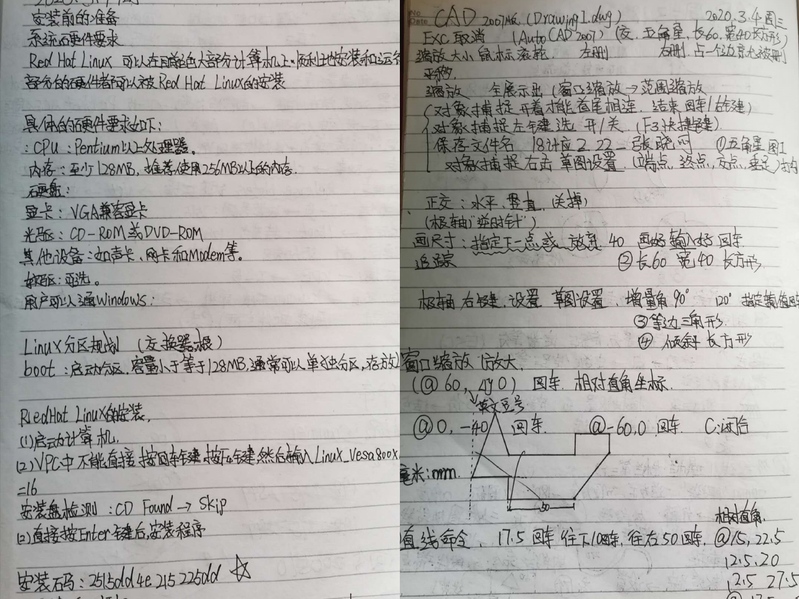 安装前的准备
系统硬件要求
Red Hat Linux 可以在目前绝大部分计算机上顺利地安装和运行
部分的硬件都可以被Red Hat Linux的安装
具体的硬件要求如下:
:CPU:Pentium以上处理器。
内存:至少128MB,推荐使用256MB以上的内存.
硬盘:
显卡:VGA兼容显卡
光驱:CD-ROM或DVD-ROM
其他设备:如声卡、网卡和Modem等。
软驱:可选。
用户可以Windows:
Linux分区规划(交换器根)
boot:启动分区,容量小于等于128MB,通常可以单独分区,存放
RedHot Linux的安装.
(1)启动计算机.
(2)VPC中不能直接按回车键,按下键,然后输入Linux_Vesa800x
=16
安装盘检测:CD Found → Skip
(2)直接按Enter键后,安装程序
安装石马:2515dd 4e 215 225dd ☆
CAD 2007版 (Drawing1.dwg) 2020.3.4 周三
EXC取消 (AutoCAD2007) (交,五角星,长60,宽40长方形)
缩放大小 鼠标滚轮 左删 右删,占一个边算也被删
平移
缩放 全展示出(窗口缩放→范围缩放
(对象捕捉开着才能首尾相连,结束回车/右键)
对象捕捉左键选开/关 (F3快捷键)
保存文件名 18计应2_22_张晓 ①五角星 图1
对象捕捉右击草图设置(端点,终点,交点,垂足)
正交:水平,竖直 (关掉)
(极轴"逆时针")
画尺寸:指定下一点或 放弃 40 画好输入好 回车
追踪 ②长60 宽40 长方形
极轴 右键 设置 草图设置 增量角90° 120°
③等边三角形
④倾斜长方形
窗口缩放 放大
(@60, 回车 相对直角坐标
英文逗号
@0,-40 回车 @-60,0 回车 C:闭合
毫米:mm
50
相对直角
直线命令. 17.5 回车 往下10回车,往右50回车 @15,22.5
12.5,20
12.5 27.5